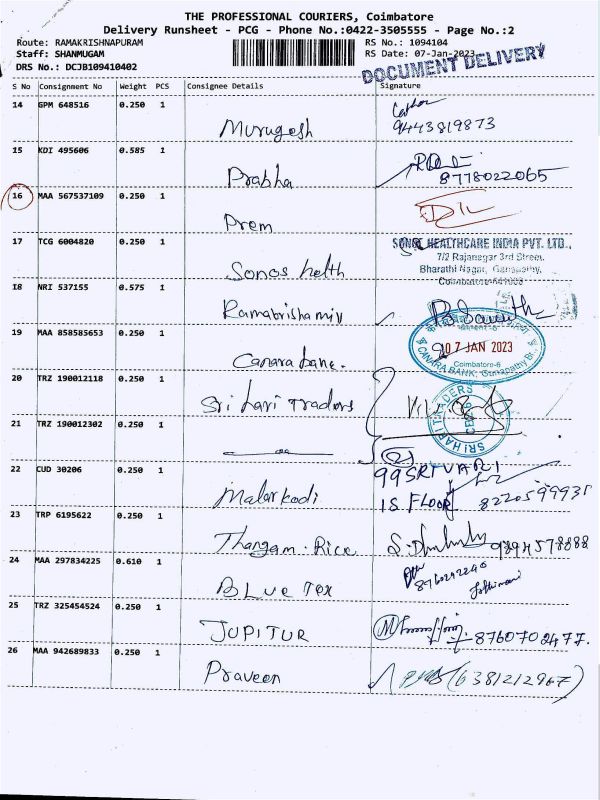 THE PROFESSIONAL COURIERS, Coimbatore
Delivery Runsheet - PCG - Phone No.:0422-3505555 - Page No.:2
Route: RAMAKRISHNAPURAM
RS No.: 1094104
Staff: SHANMUGAM
RS Date: 07-Jan-2023
DRS No.: DCJB109410402
DOCUMENT DELIVERY
S No Consignment No Weight PCS Consignee Details Signature
14 GPM 648516 0.250 1
Murugesh
9443819873
15 KDI 495606 0.585 1
Prabha
8778022065
16 MAA 567537109 0.250 1
Prem
17 TCG 6004820 0.250 1
SONIC HEALTHCARE INDIA PVT. LTD.,
7/2 Rajanagar 3rd Street,
Bharathi Nagar, Ganapathy,
Coimbatore-641006
Sonos helth
18 NRI 537155 0.575 1
19 MAA 858585653 0.250 1
07 JAN 2023
Coimbatore-6
CANARA BANK, Ganapathy Br.
Canara bank.
20 TRZ 190012118 0.250 1
Sri hari traders
SRI HARI TRADERS
21 TRZ 190012302 0.250 1
22 CUD 30206 0.250 1
99 SRIVARI
Malarkodi
1S FLOOR
8220599931
23 TRP 6195622 0.250 1
Thangam. Rice
9894578888
24 MAA 297834225 0.610 1
BLUE TEX
8760292290
25 TRZ 325454524 0.250 1
JUPITUR
8760702477.
26 MAA 942689833 0.250 1
Praveen
(6381212967)